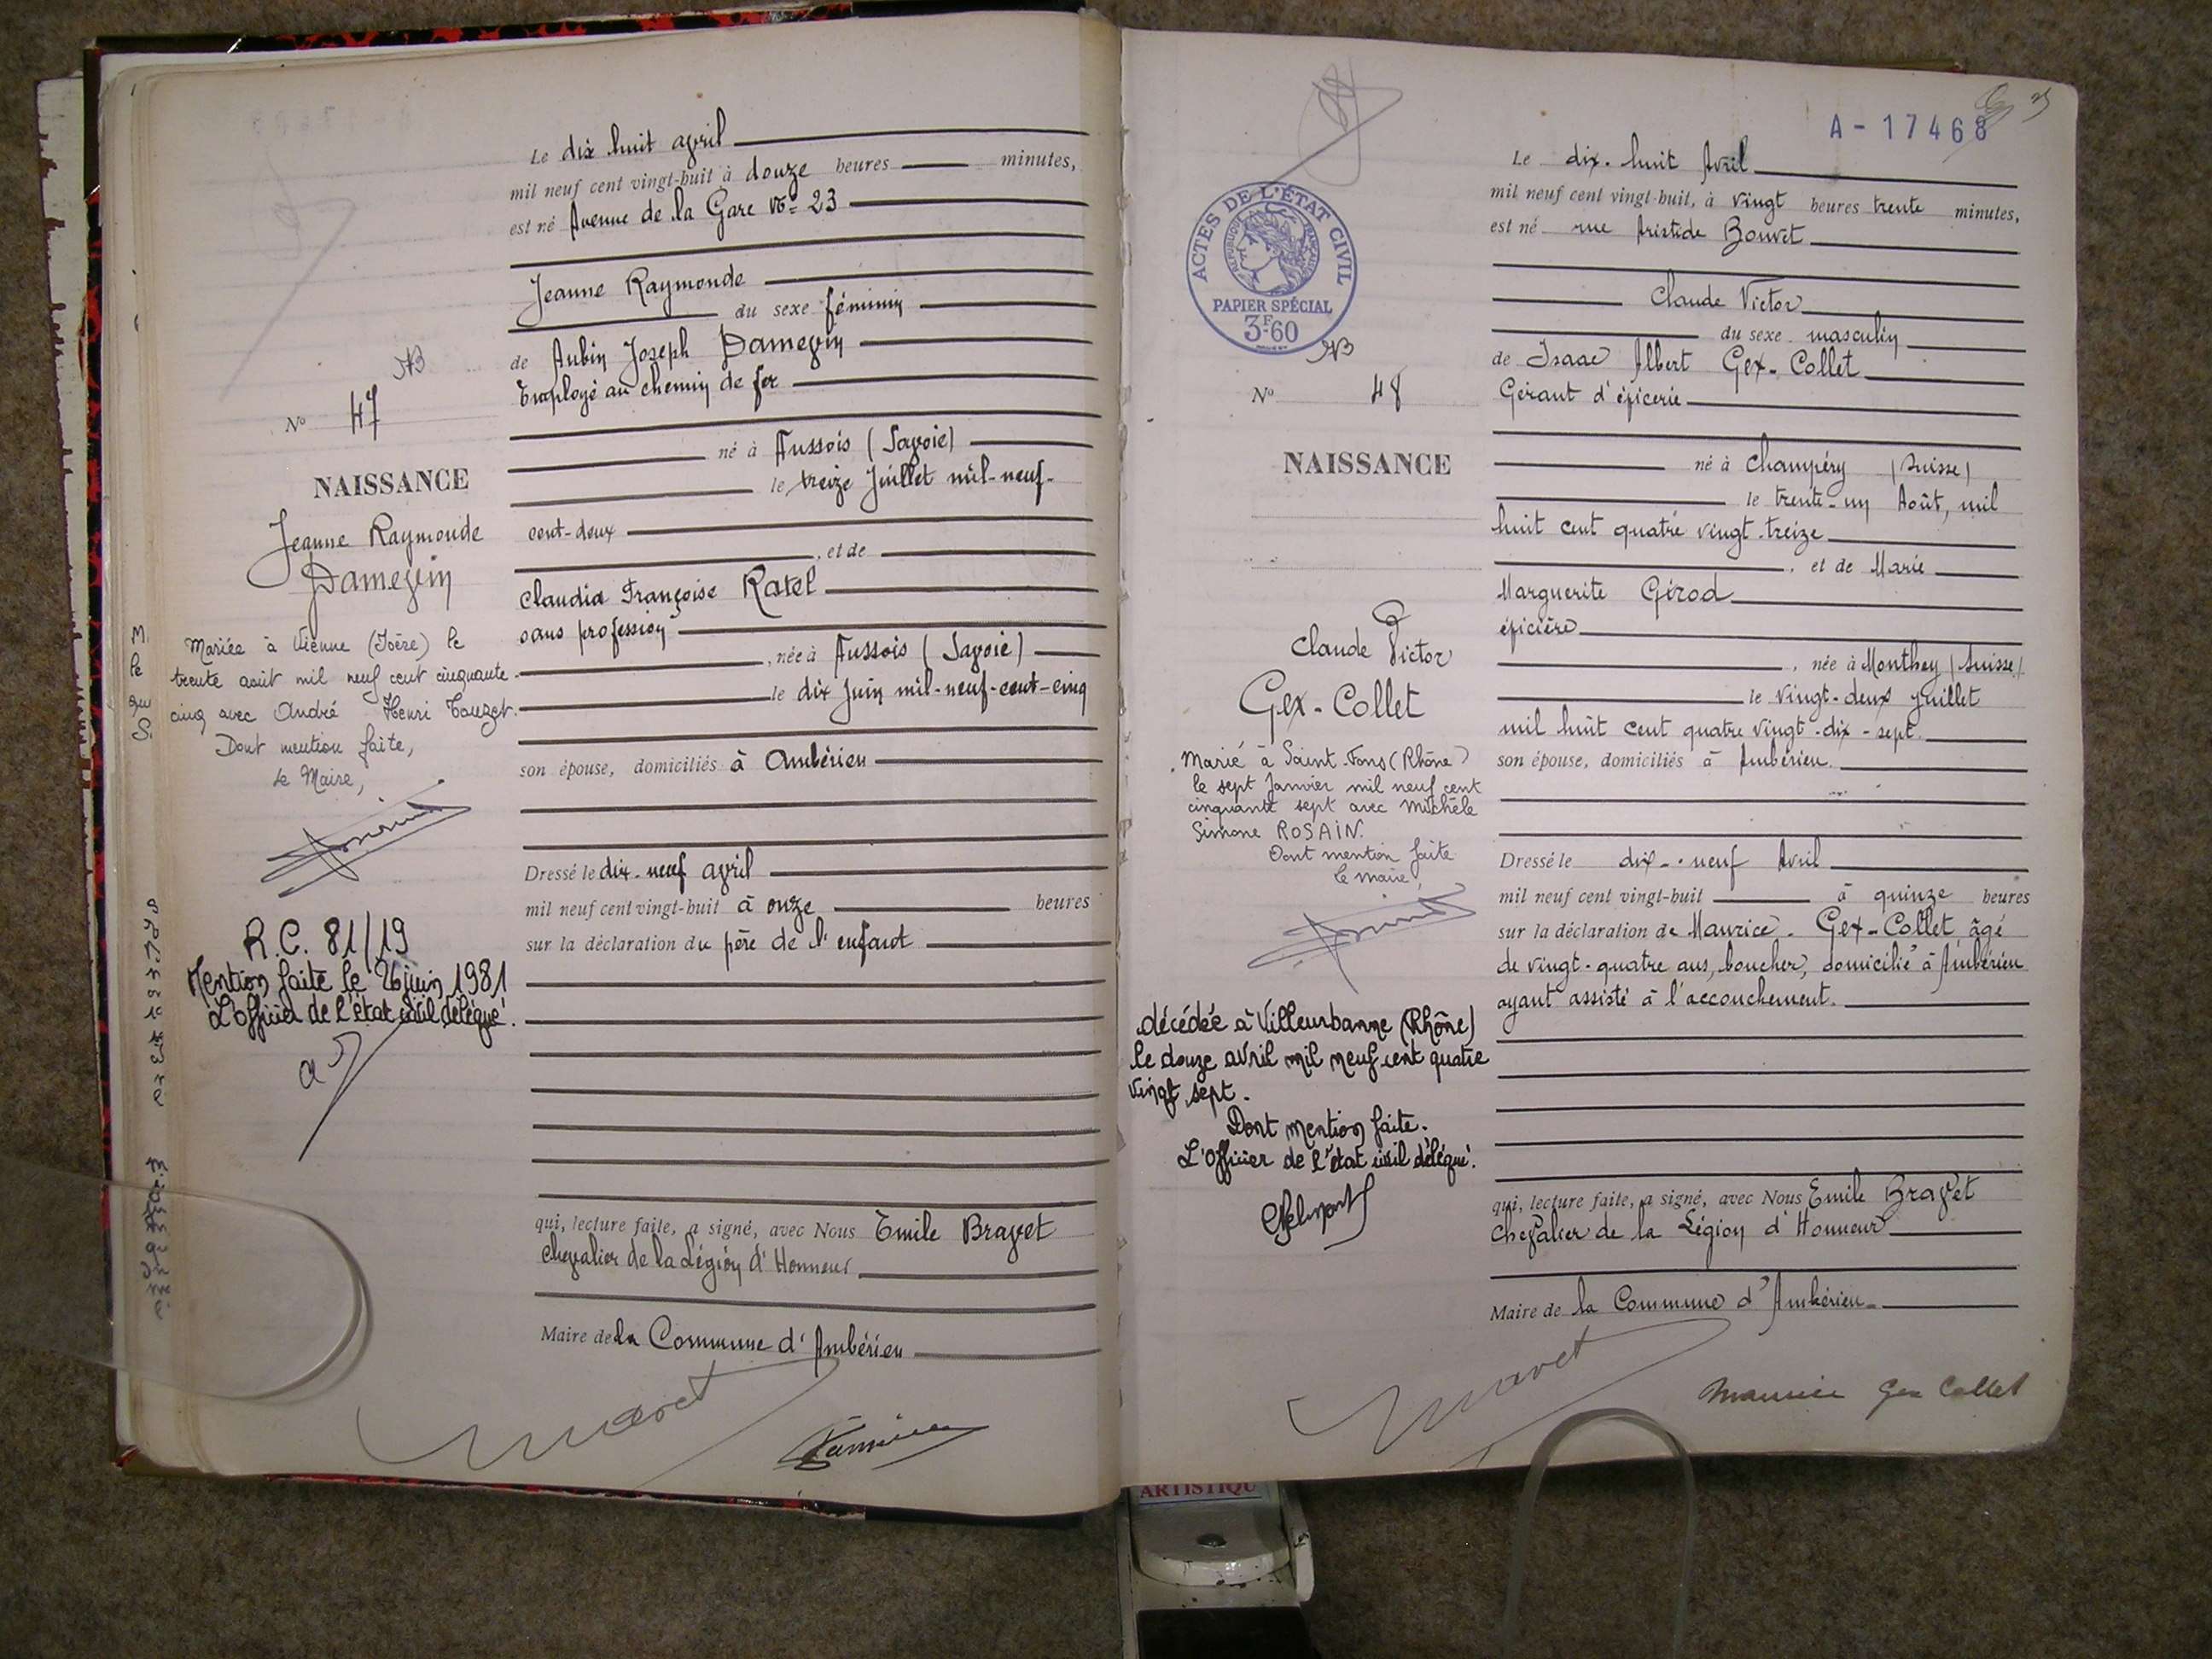 Le dix huit avril
mil neuf cent vingt-huit à douze heures minutes,
est né Avenue de la Gare No= 23
Jeanne Raymonde
du sexe féminin
de Aubin Joseph Damevin
Employé au chemin de fer
né à Aussois (Savoie)
le treize Juillet mil-neuf-
cent-deux
, et de
Claudia Françoise Ratel
sans profession
, née à Aussois (Savoie)
le dix Juin mil-neuf-cent-cinq
son épouse, domiciliés à Ambérieu
Dressé le dix-neuf avril
mil neuf cent vingt-huit à onze heures
sur la déclaration du père de l'enfant
qui, lecture faite, a signé, avec Nous Emile Bravet
Chevalier de la Légion d'Honneur
Maire de la Commune d'Ambérieu
No 47
NAISSANCE
Jeanne Raymonde
Damevin
Mariée à Vienne (Isère) le
trente août mil neuf cent cinquante-
cinq avec André Henri Touzet.
Dont mention faite,
Le Maire,
R.C. 81/19
Mention faite le 26 juin 1981
L'Officier de l'état civil délégué.
A-17468
Le dix-huit Avril
mil neuf cent vingt-huit, à vingt heures trente minutes,
est né rue Aristide Bouvet
Claude Victor
du sexe masculin
de Isaac Albert Gex-Collet
Gérant d'épicerie
né à Champéry (Suisse)
le trente-un Août, mil
huit cent quatre vingt-treize
, et de Marie
Marguerite Girod
épicière
, née à Monthey (Suisse)
le vingt-deux juillet
mil huit cent quatre vingt-dix-sept.
son épouse, domiciliés à Ambérieu.
Dressé le dix-neuf Avril
mil neuf cent vingt-huit à quinze heures
sur la déclaration de Maurice Gex-Collet âgé
de vingt-quatre ans, boucher, domicilié à Ambérieu
ayant assisté à l'accouchement.
qui, lecture faite, a signé, avec Nous Emile Bravet
Chevalier de la Légion d'Honneur
Maire de la Commune d'Ambérieu
Maurice Gex Collet
ACTES DE L'ÉTAT CIVIL
RÉPUBLIQUE FRANÇAISE
PAPIER SPÉCIAL
3F60
No 48
NAISSANCE
Claude Victor
Gex-Collet
Marié à Saint-Fons (Rhône)
le sept Janvier mil neuf cent
cinquante sept avec Michèle
Simone ROSAIN.
Dont mention faite
le maire,
décédée à Villeurbanne (Rhône)
le douze avril mil neuf cent quatre
vingt sept.
Dont mention faite.
L'Officier de l'état civil délégué.
ARTISTIQU